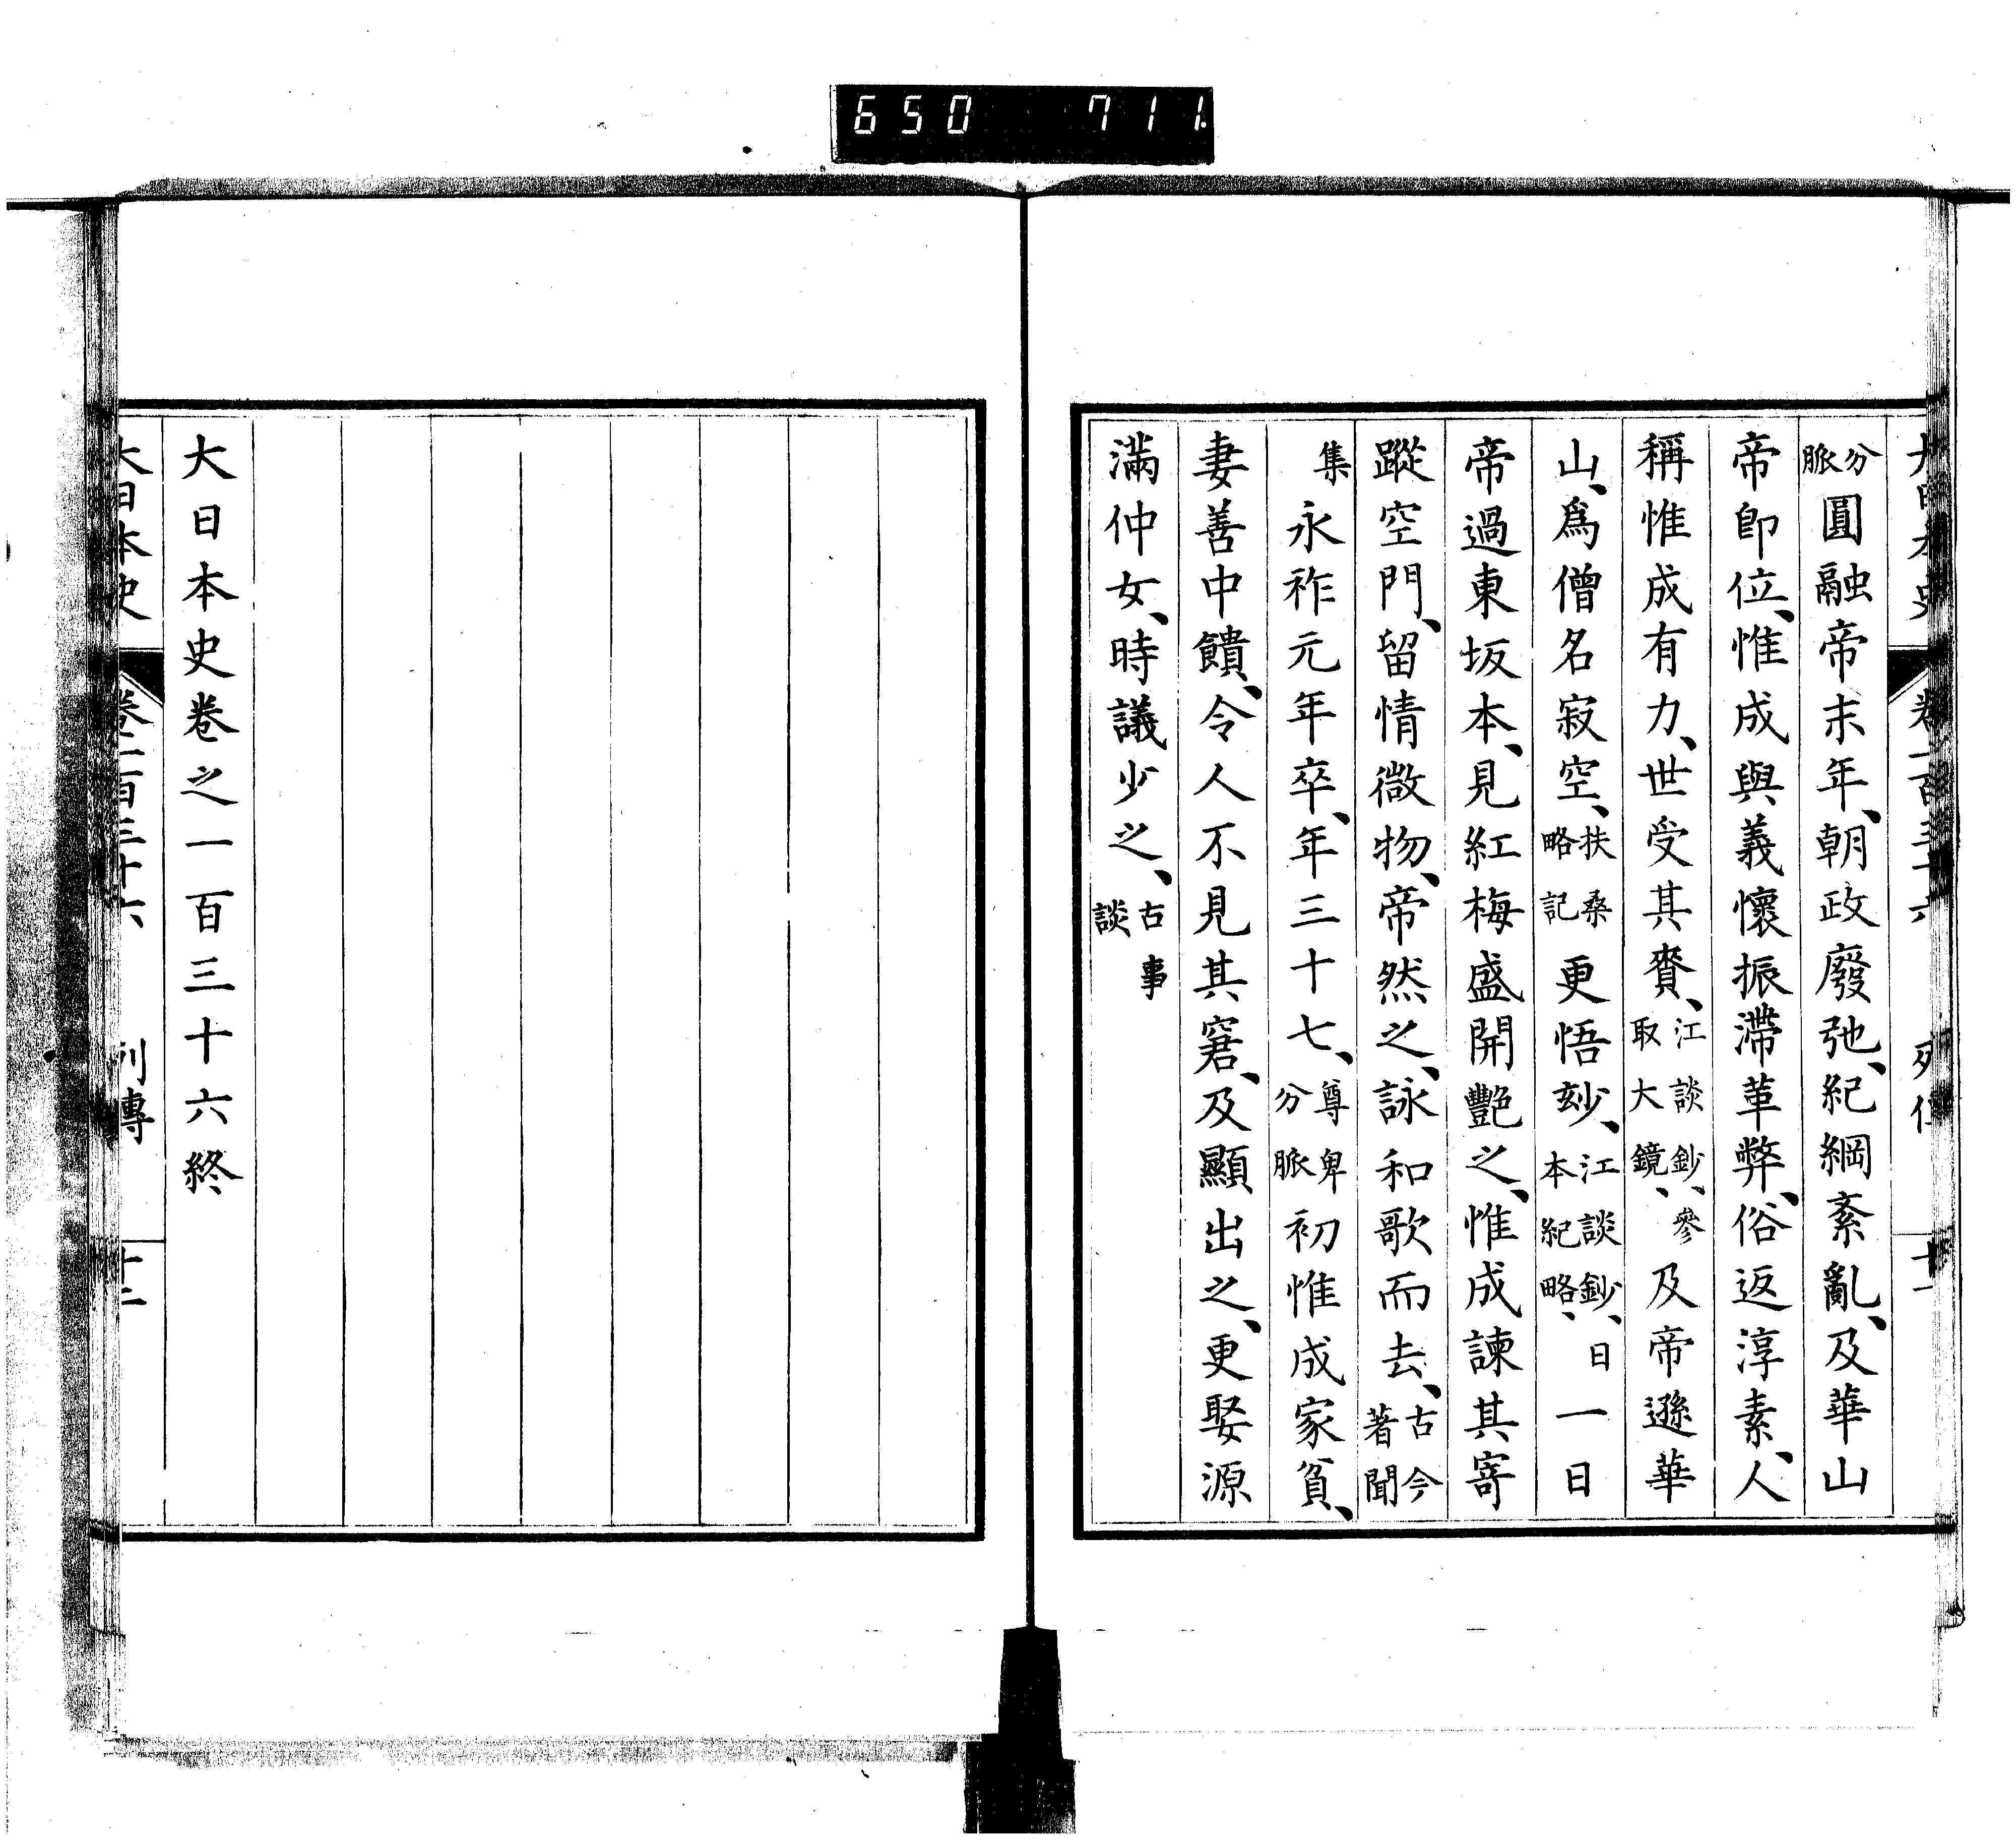 650 711
大日本史 卷一百三十六 列傳 十一
分脈圓融帝末年、朝政廢弛、紀綱紊亂、及華山
帝卽位、惟成與義懷振滯革弊、俗返淳素、人
稱惟成有力、世受其賚、江談鈔、參取大鏡、及帝遜華
山、爲僧名寂空、扶桑略記更悟玅、江談鈔、日本紀略、一日
帝過東坂本、見紅梅盛開艷之、惟成諫其寄
蹤空門、留情微物、帝然之、詠和歌而去、古今著聞
集永祚元年卒、年三十七、尊卑分脈初惟成家貧、
妻善中饋、令人不見其窘、及顯出之、更娶源
滿仲女、時議少之、古事談
大日本史卷之一百三十六終
大日本史 卷一百三十六 列傳 十二